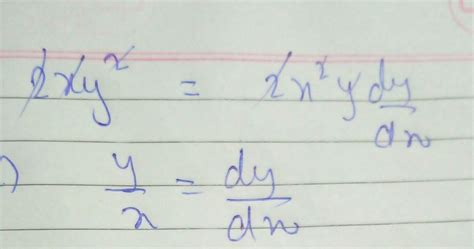 2xy² = 2x²y dy/dx
) y/x = dy/dx